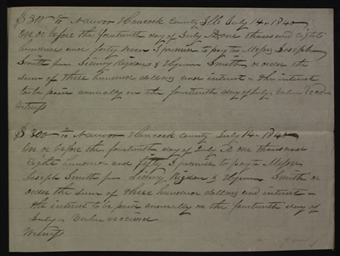 $ 300 00/100 Nauvoo Hancock County Ills July 14th 1840
On or before the fourteenth day of July One thousand eight
hundred and forty I promise to pay to Messrs Joseph
Smith Junr Sidney Rigdon & Hyrum Smith or order the
sum of three hundred dollars and interest - the interest
to be paid annually on the fourteenth day of July value recd
Witness
$ 300 Nauvoo Hancock County July 14th 1840
On or before the fourteenth day of July one thousand
eight hundred and fifty I promise to pay to Messrs
Joseph Smith Junr Sidney Rigdon & Hyrum Smith or
order the sum of three hundred dollars and interest -
the interest to be paid annually on the fourteenth day of
July - value received
Witness